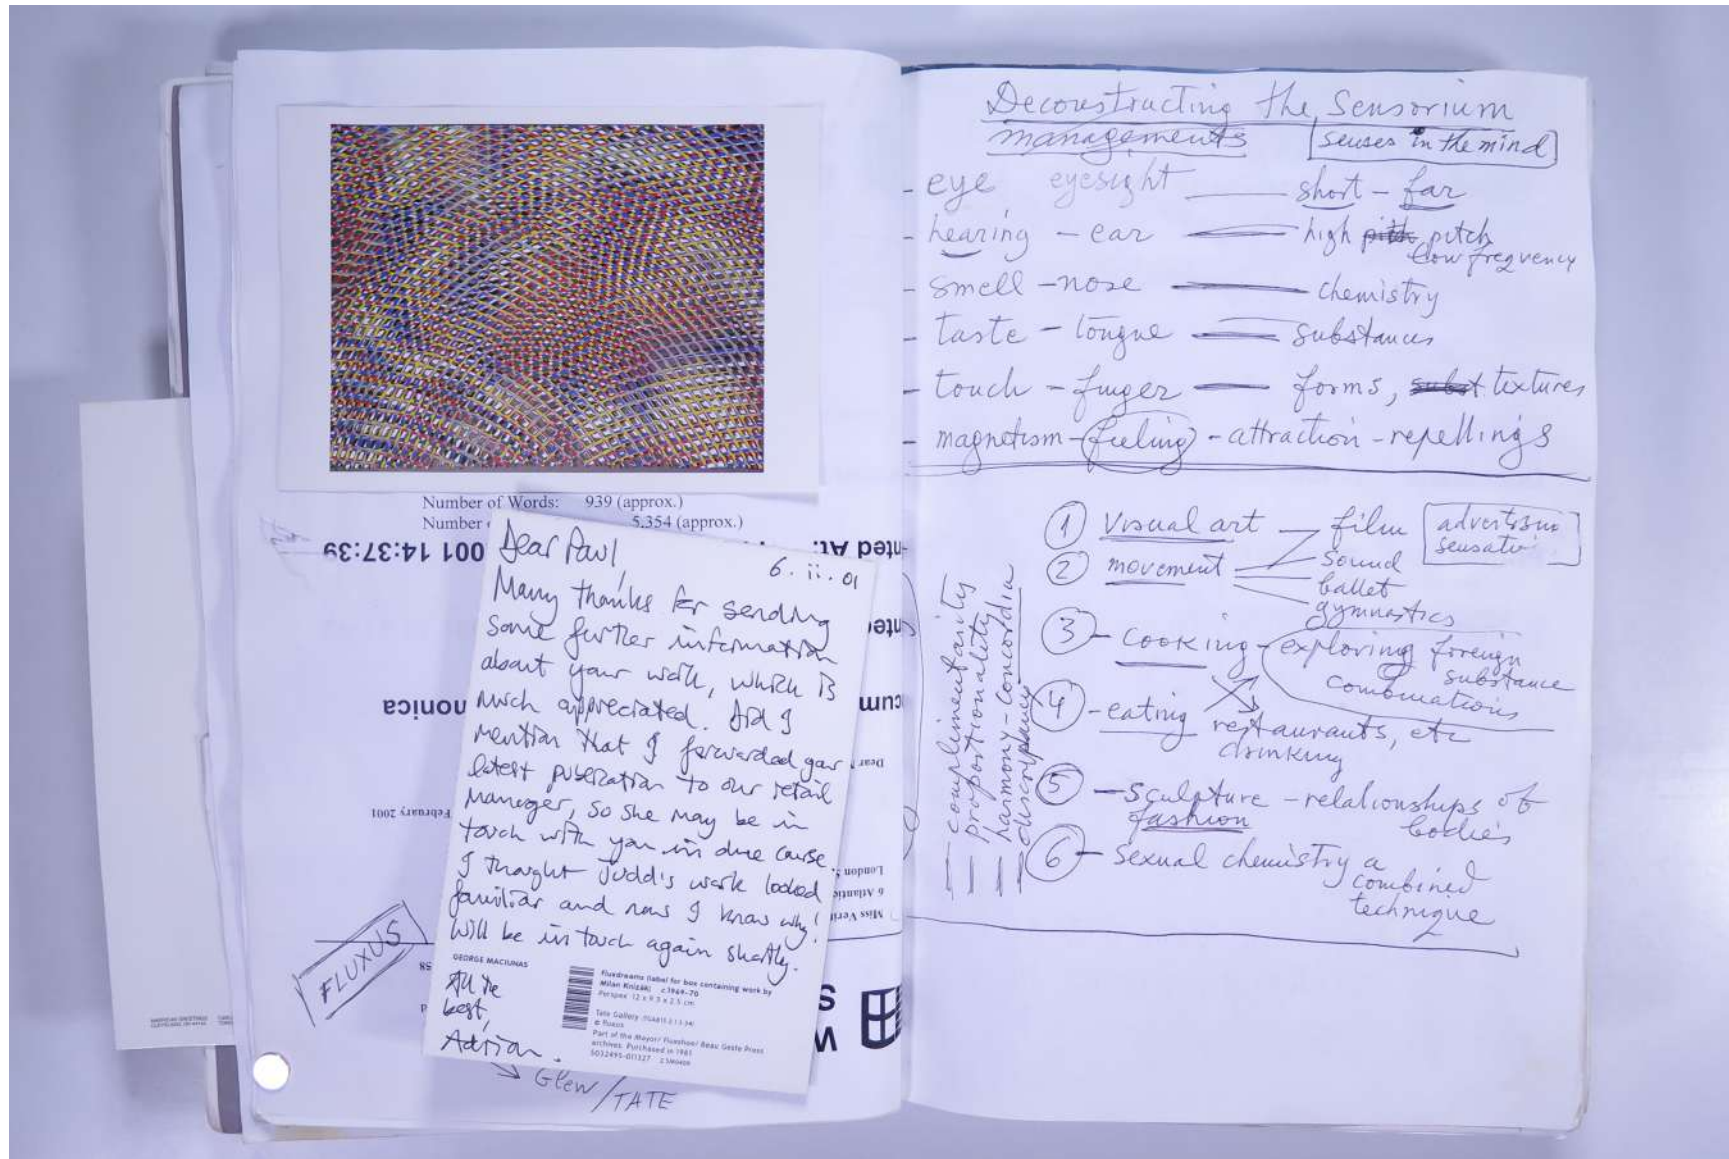 Number of Words: 939 (approx.)
Number 5,354 (approx.)
001 14:37:39
nted At:
Dear Paul,
6. ii. 01
Many thanks for sending
some further information
about your work, which is
much appreciated. Did I
mention that I forwarded your
latest publication to our retail
manager, so she may be in
touch with you in due course.
I thought Judd's work looked
familiar and now I know why!
Will be in touch again shortly.
All the
best,
Adrian.
GEORGE MACIUNAS
Fluxdreams (label for box containing work by
Milan Knížák) c.1969-70
Perspex 12 x 9.3 x 2.5 cm
Tate Gallery
© Fluxus
Part of the Mayor/ Fluxshoe/ Beau Geste Press
archives. Purchased in 1981
Glew / TATE
FLUXUS
monica
Dear
February 2001
London
6 Atlantic
58
Deconstructing the Sensorium
managements
senses in the mind
- eye eyesight short - far
- hearing - ear high pitch
low frequency
- smell - nose chemistry
- taste - tongue substances
- touch - finger forms, textures
- magnetism - feeling - attraction - repellings
1 Visual art - film
advertising
sound
2 movement
ballet
gymnastics
3 - cooking - exploring foreign
substance
combinations
4 - eating restaurants, etc
drinking
5 - sculpture - relationships of
bodies
fashion
6 - sexual chemistry a
combined
technique
- complimentarity
- proportionality
- harmony - concordia
- discrepancy